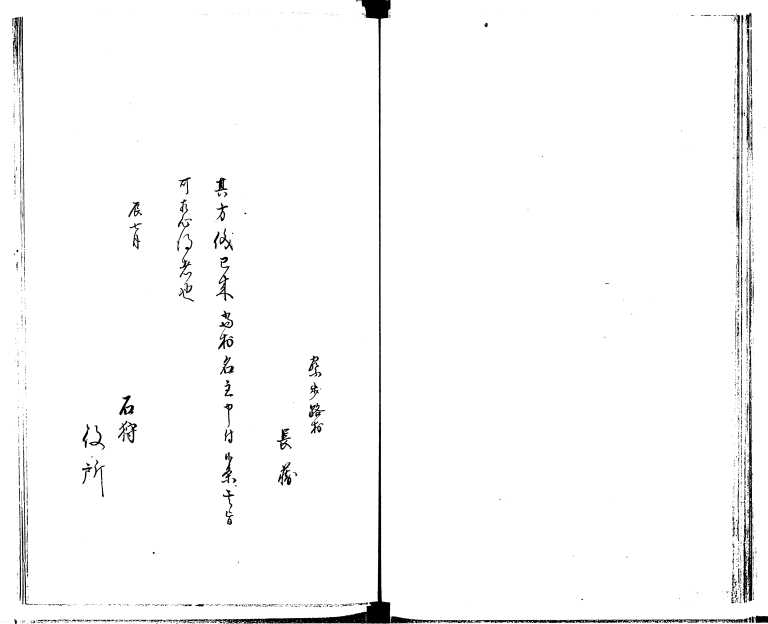 札歩路村
長蔵
其方儀已来当村名主申付候条其旨
可相心得者也
辰七月
石狩
役所